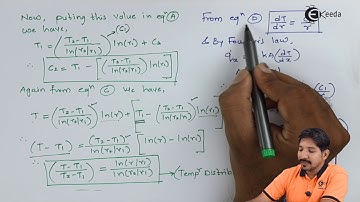 Now, puting this value in eqⁿ (A)
we have,
T₁ = (T₂-T₁)/ln(r₀/r₁) ln(r₁) + C₂
∴ C₂ = T₁ - [(T₂-T₁)/ln(r₀/r₁) ln(r₁)]
Again from eqⁿ we have,
T = (T₂-T₁)/ln(r₀/r₁) ln(r) + [T₁ - (T₂-T₁)/ln(r₀/r₁) ln(r₁)]
∴ (T-T₁) = (T₂-T₁)/ln(r₀/r₁) [ln(r) - ln(r₁)]
∴ (T-T₁)/(T₂-T₁) = ln(r/r₁)/ln(r₀/r₁) → (Tempʳ Distrib
From eqⁿ dT/dr =
& By Fourier's law,